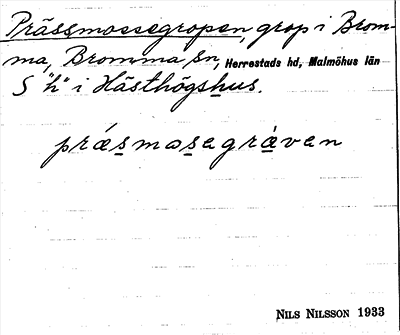 Prässmossegropen, grop i Brom-
ma, Bromma sn, Herrestads hd, Malmöhus län
S "h" i Hästhögshus.
præsmosagråvan
NILS NILSSON 1933